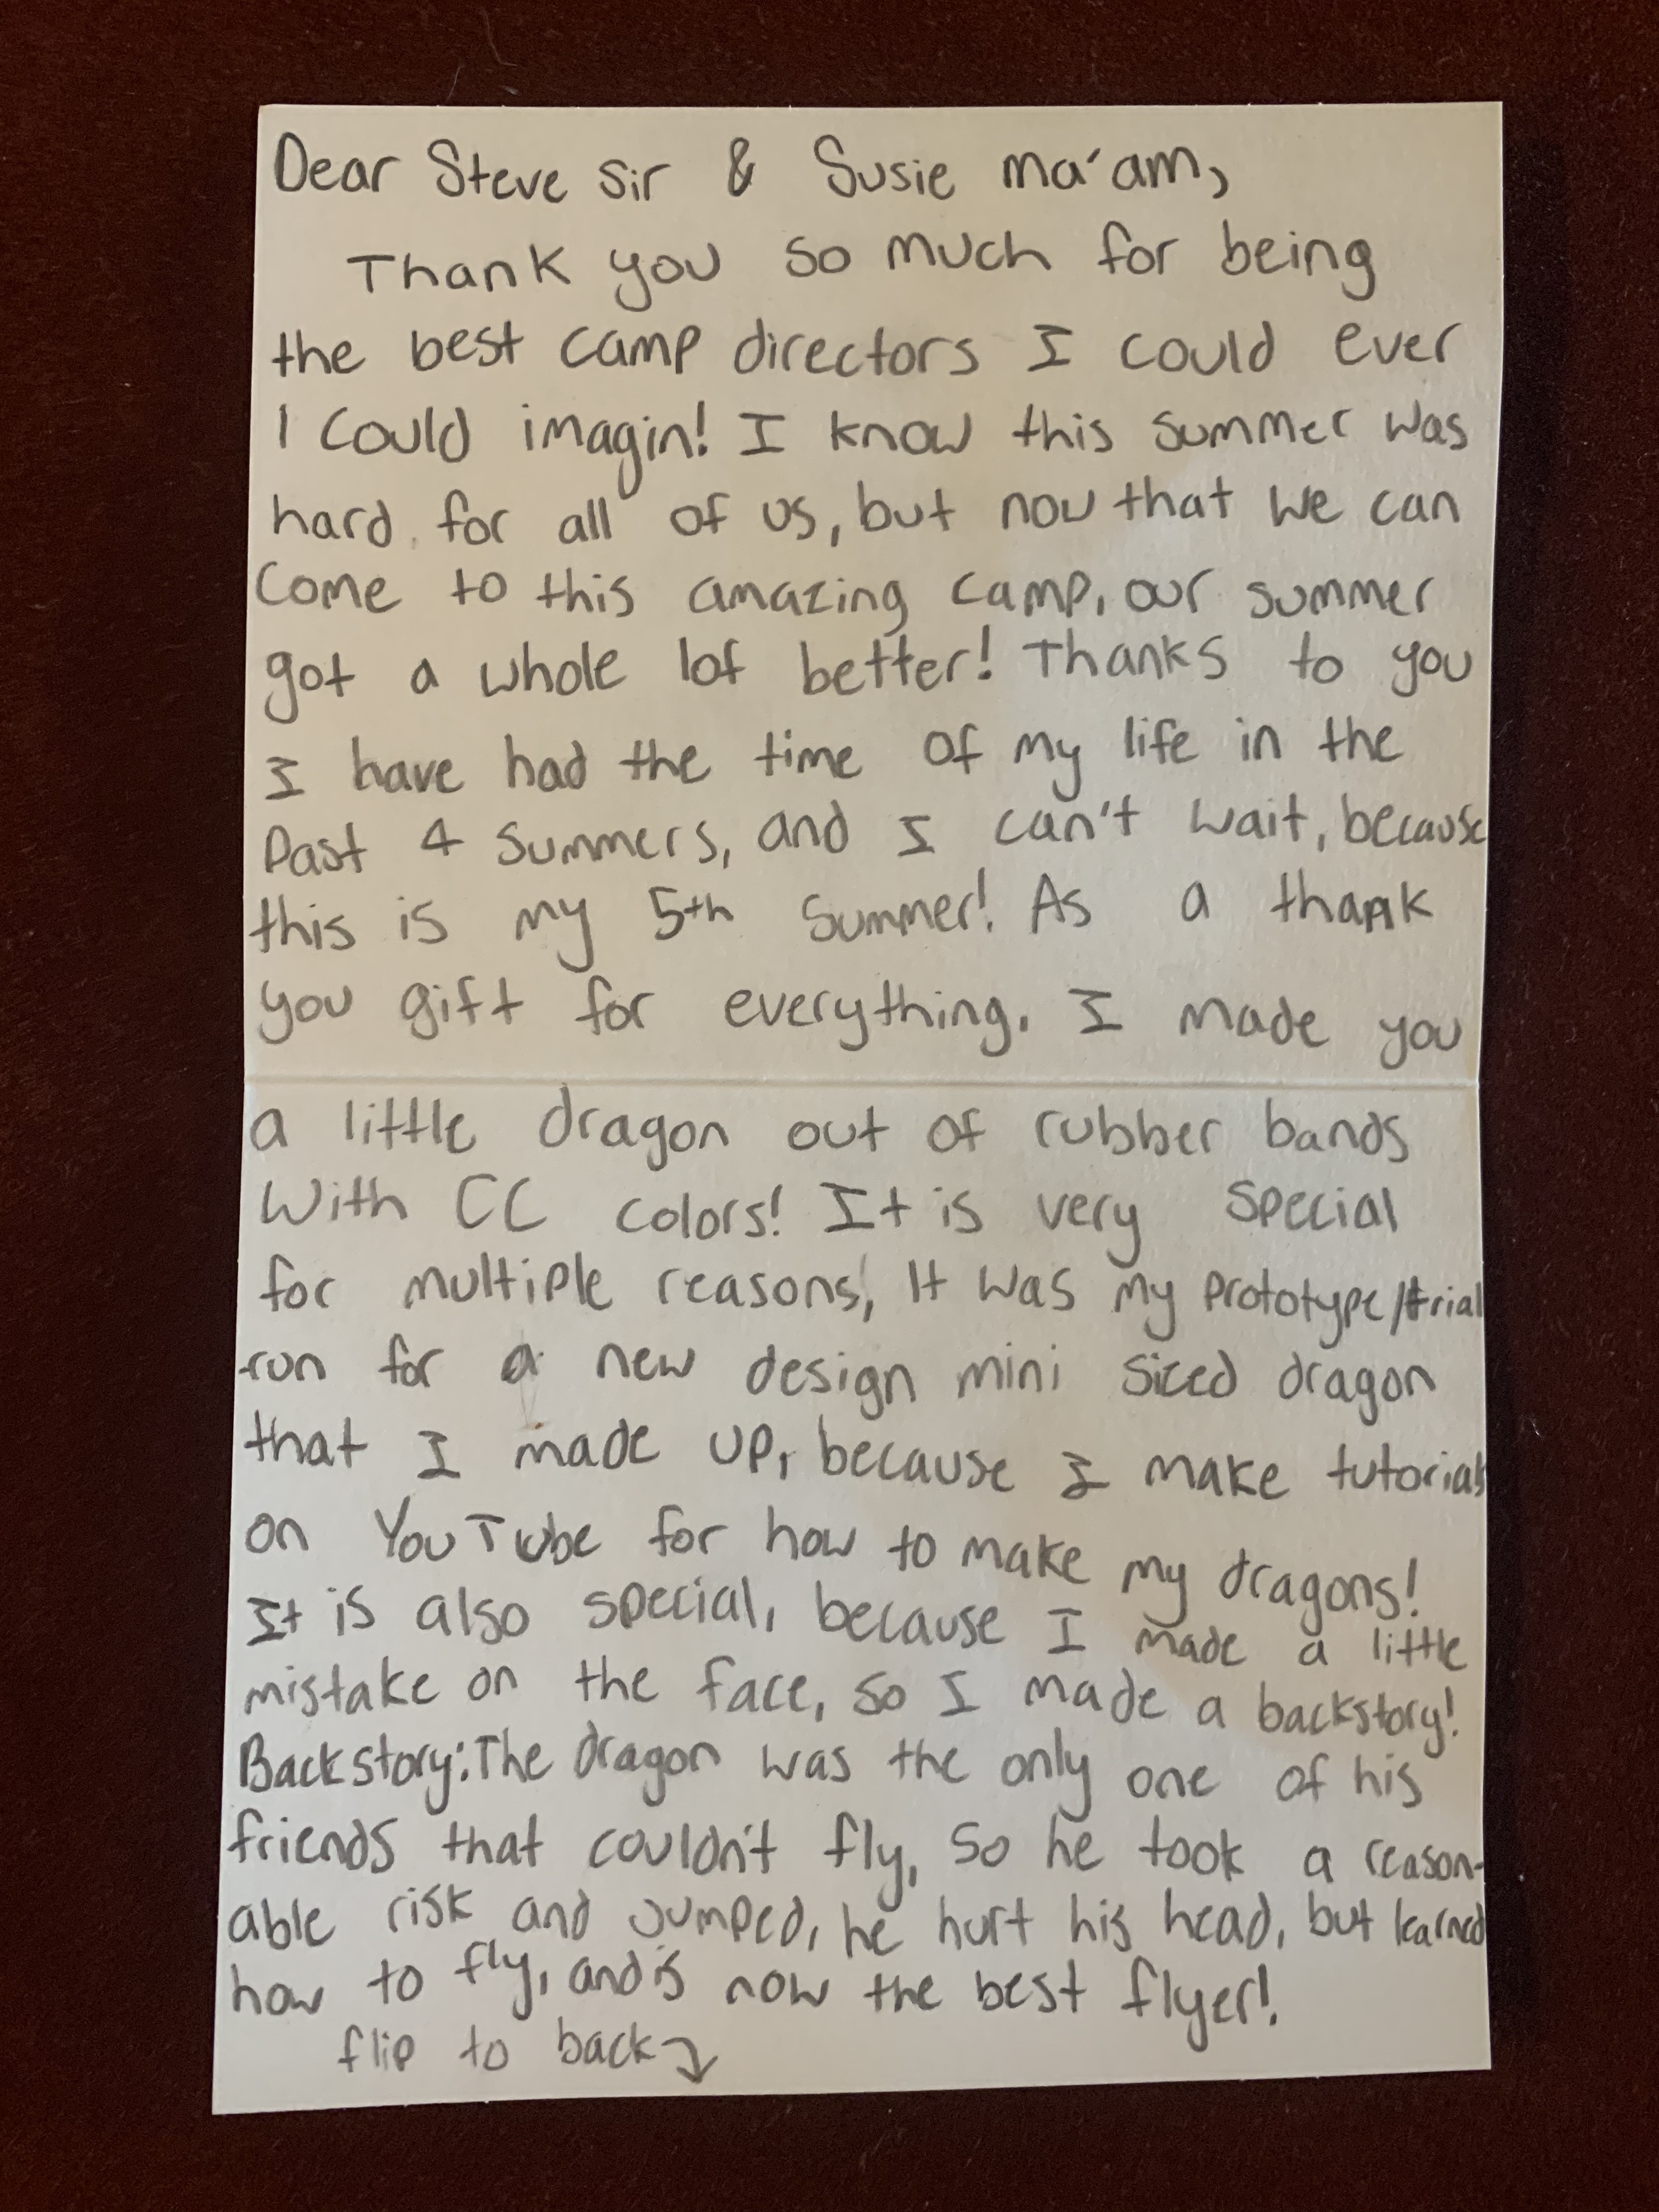 Dear Steve Sir & Susie ma'am,
Thank you so much for being
the best camp directors I could ever
I could imagin! I know this summer was
hard for all of us, but now that we can
Come to this amazing camp, our summer
got a whole lot better! Thanks to you
I have had the time of my life in the
Past 4 summers, and I can't wait, because
this is my 5th Summer! As a thank
you gift for everything. I made you
a little dragon out of rubber bands
With CC colors! It is very special
for multiple reasons, It was my prototype/trial
run for a new design mini sized dragon
that I made up, because I make tutorials
on YouTube for how to make my dragons!
It is also special, because I made a little
mistake on the face, so I made a backstory!
Backstory: The dragon was the only one of his
friends that couldn't fly, so he took a reason-
able risk and jumped, he hurt his head, but learned
how to fly, and is now the best flyer!
flip to back